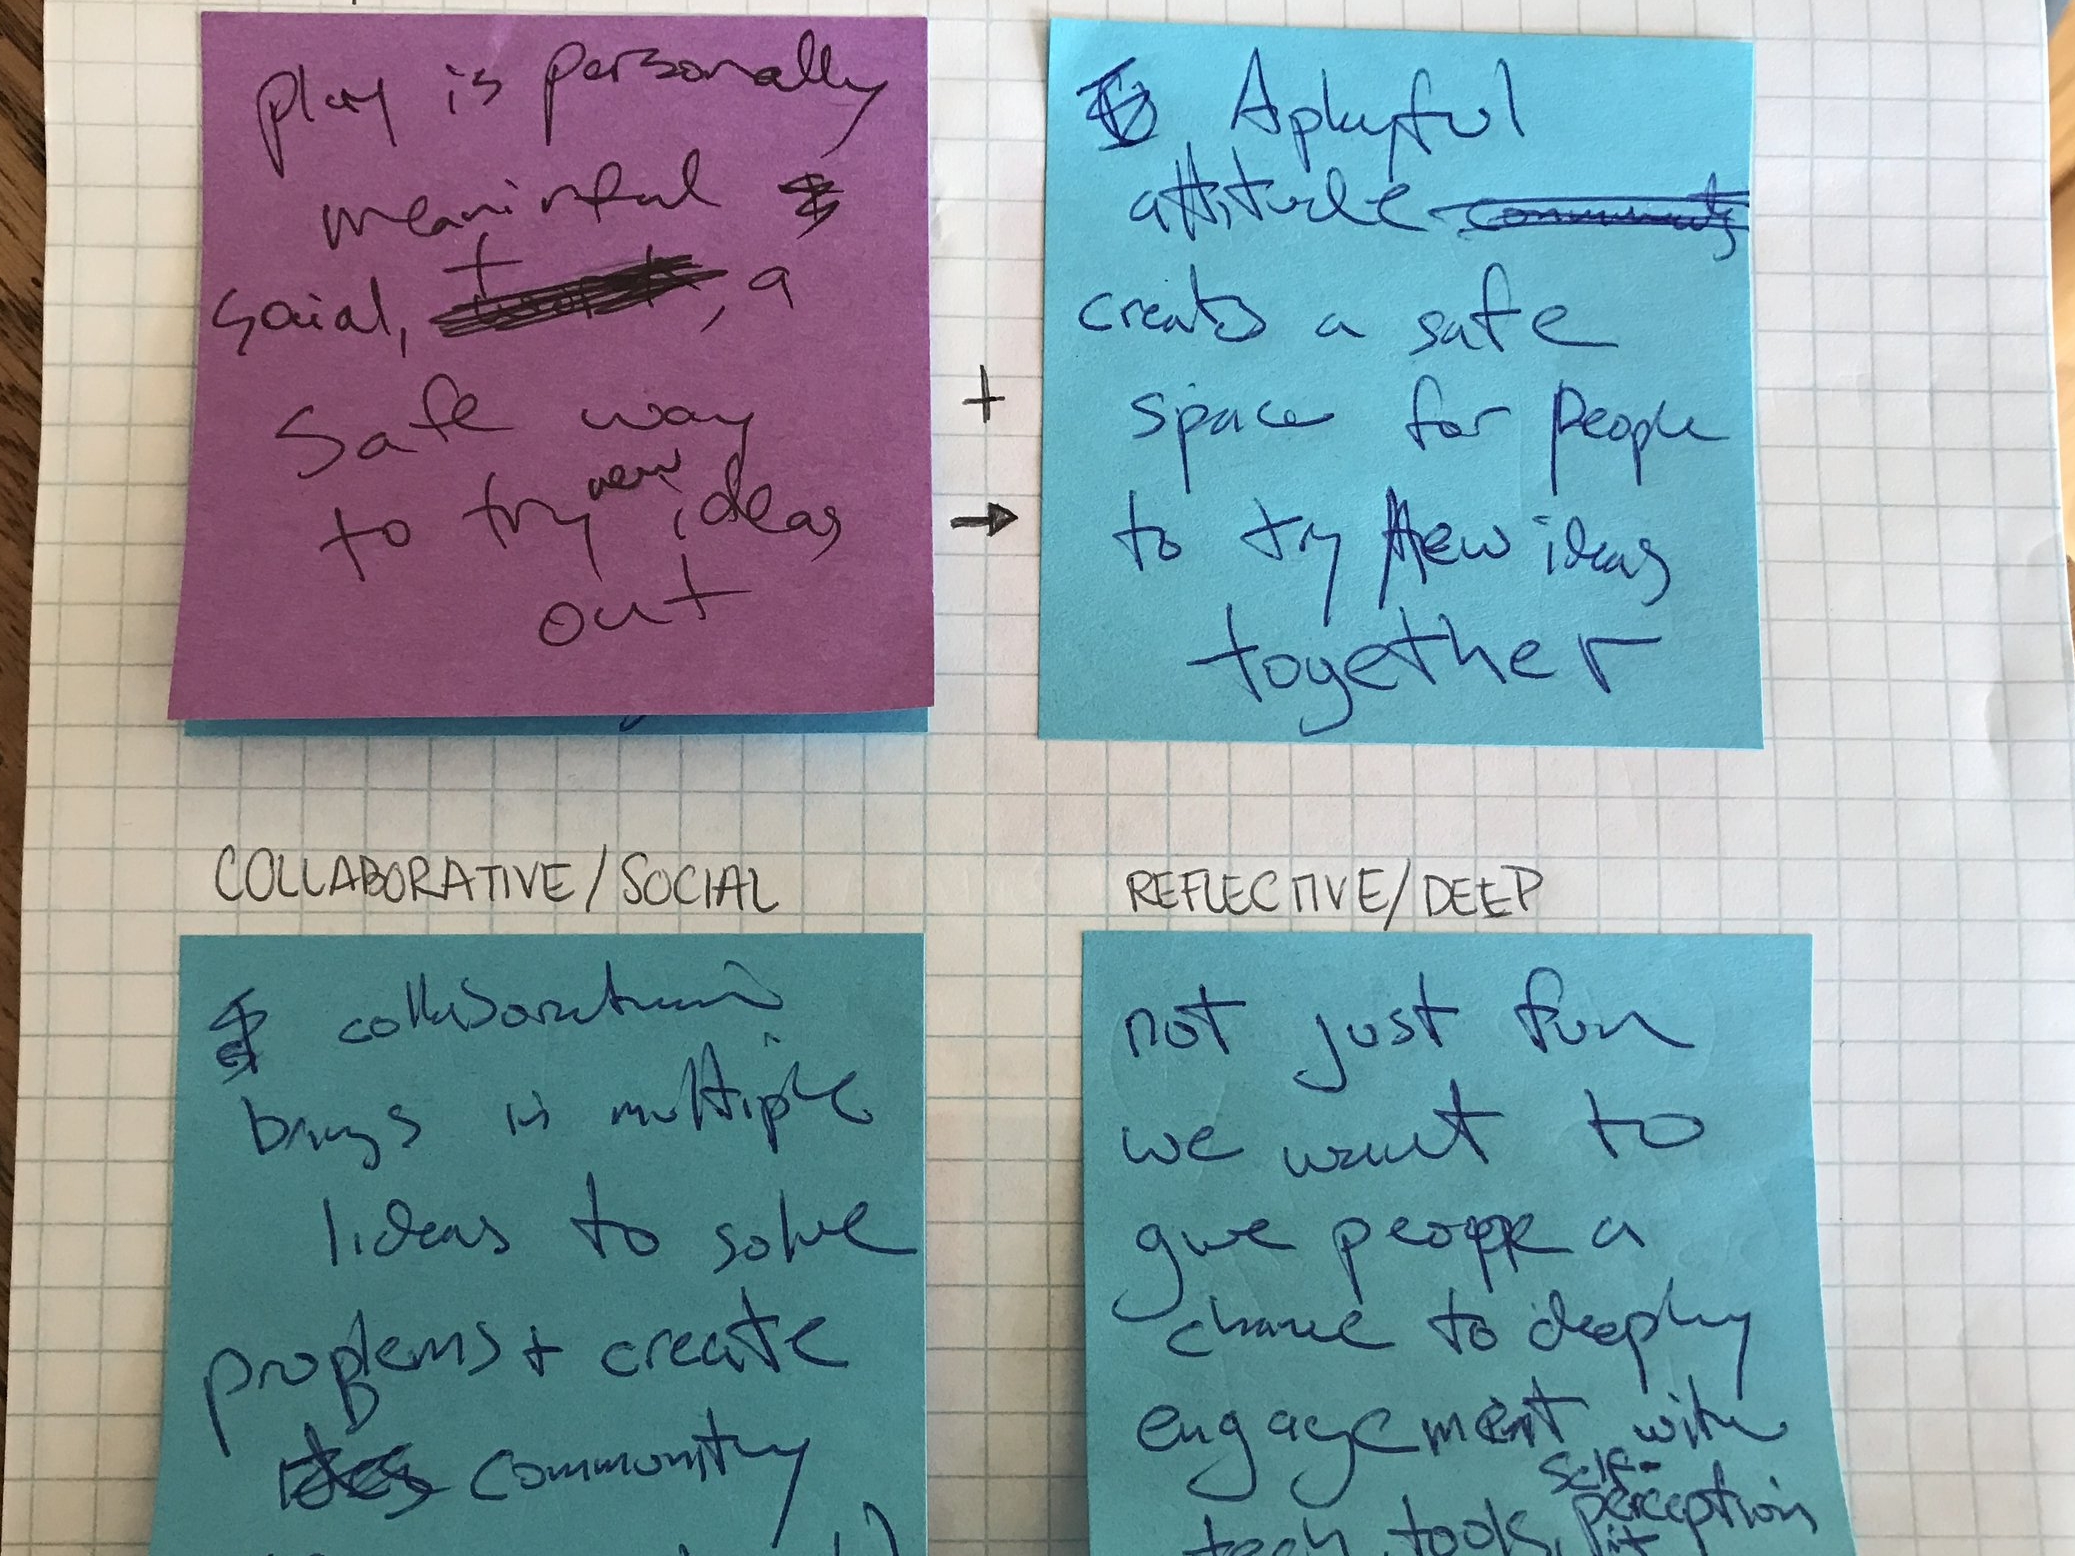 play is personally
meaninful
social, +, a
safe way
to try new ideas
out
+
→
A playful
attitude community
creates a safe
space for people
to try new ideas
together
COLLABORATIVE/SOCIAL
collaboration
brings in multiple
ideas to solve
problems + create
community
REFLECTIVE/DEEP
not just fun
we want to
give people a
chance to deeply
engagement with
self-
perception
tech, tools, lit